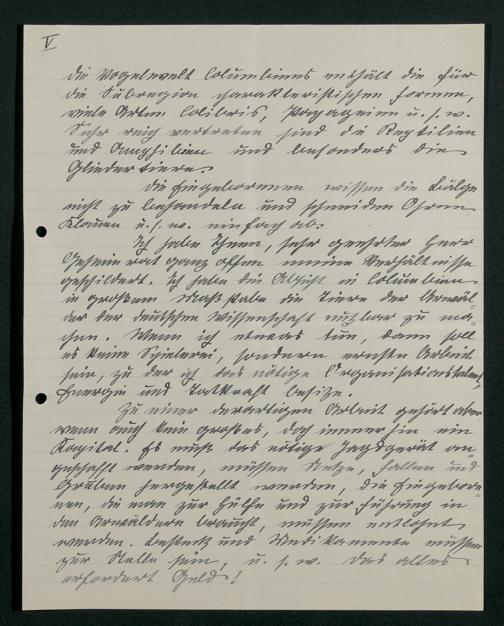 V
die Vogelwelt Columbiens enthält die für
die Subregion charakteristischen Formen,
viele Arten Colibris, Papageien u.s.w.
Sehr reich vertreten sind die Reptilien
und Amphibien und besonders die
Gliedertiere.
Die Eingeborenen wissen die Bälge
nicht zu behandeln und schneiden Ohren
Klauen u.s.w. einfach ab.
Ich habe Ihnen, sehr geehrter Herr
Geheimrat ganz offen meine Verhältnisse
geschildert. Ich habe die Absicht in Columbien
in großem Maßstabe die Tiere der Urwäl-
der der deutschen Wissenschaft nutzbar zu ma-
chen. Wenn ich etwas tue, dann soll
es keine Spielerei, sondern ernste Arbeit
sein, zu der ich das nötige Organisationstalent,
Energie und Tatkraft besitze.
Zu einer derartigen Arbeit gehört aber
wenn auch kein großes, doch immerhin ein
Kapital. Es muß das nötige Jagdgerät an-
geschafft werden, müssen Netze, Fallen und
Gruben hergestellt werden, die Eingebore-
nen, die man zur Hülfe und zur Führung in
den Urwäldern braucht, müssen entlohnt
werden. Besteck und Medikamente müssen
zur Stelle sein, u.s.w. Das alles
erfordert Geld!